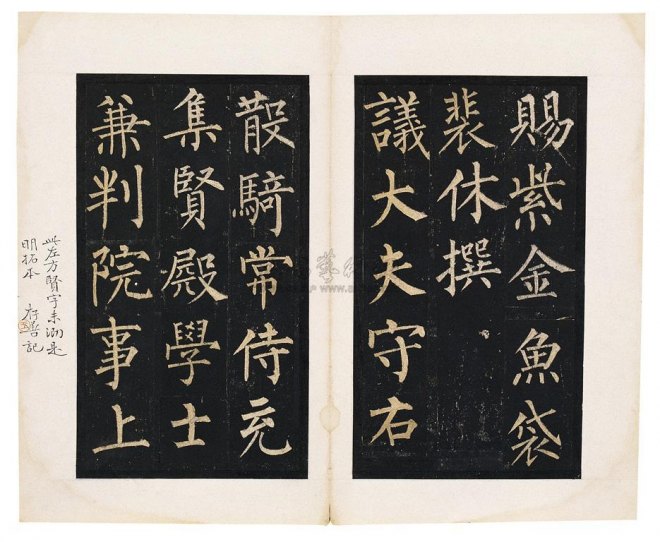 賜紫金魚袋
裴休撰
議大夫守右
散騎常侍充
集賢殿學士
兼判院事上
此左方賢字未泐是
明拓本